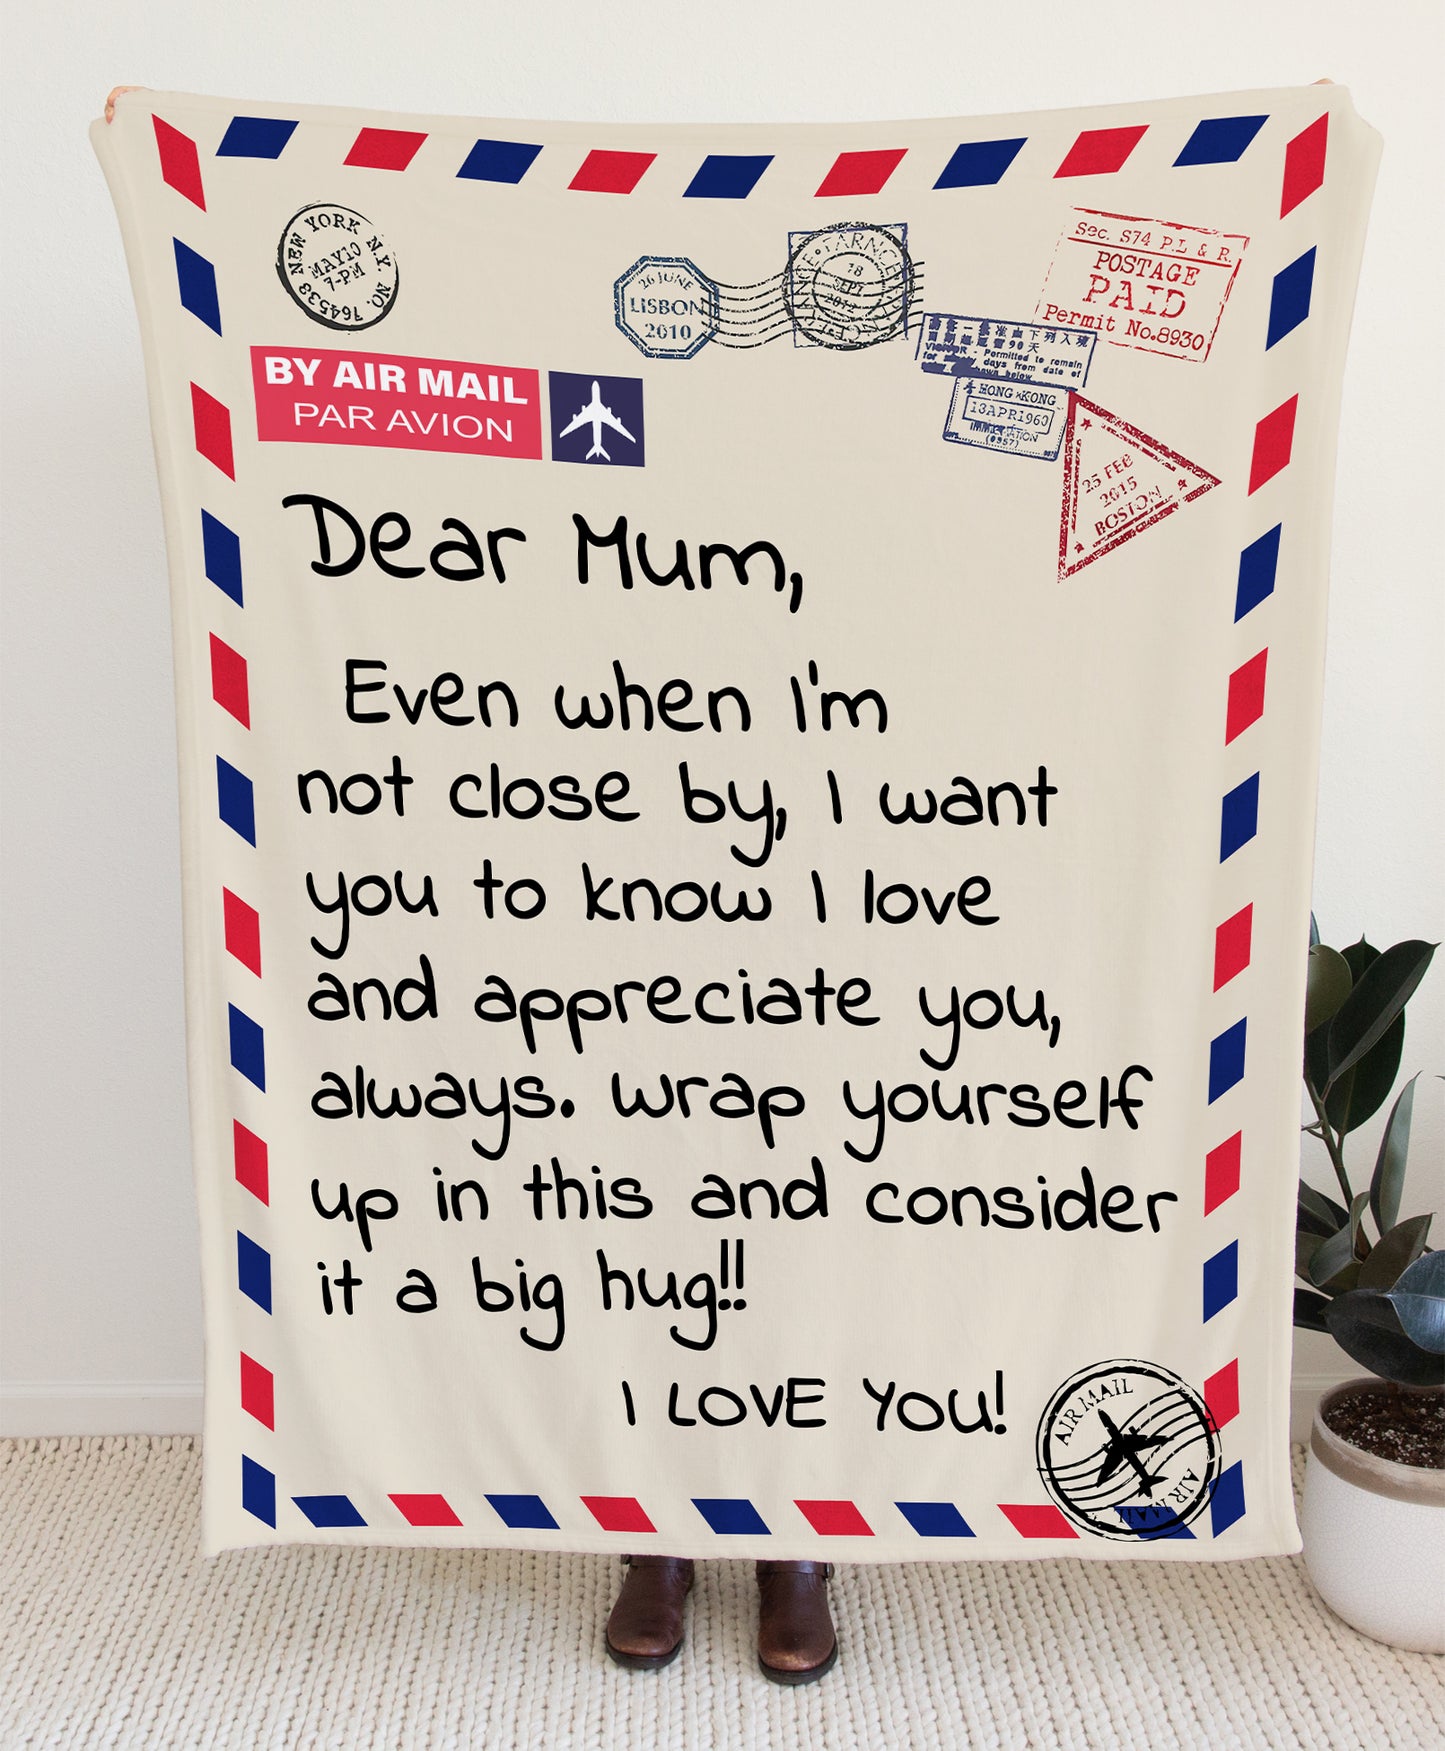 NEW YORK N.Y. NO. 764538
MAY10
7-PM
26 JUNE
LISBON
2010
18
SEPT
2012
Sec. S74 P.L & R.
POSTAGE
PAID
Permit No.8930
BY AIR MAIL
PAR AVION
VISITOR - Permitted to remain
for days from date of
shown below
HONG KONG
13APR1960
IMMIGRATION
(0957)
25 FEB
2015
BOSTON
Dear Mum,
Even when I'm
not close by, I want
you to know I love
and appreciate you,
always. Wrap yourself
up in this and consider
it a big hug!!
I LOVE YOU!
AIR MAIL
AIR MAIL